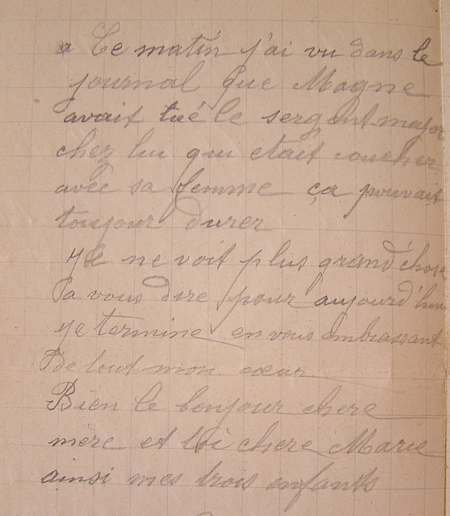 Ce matin j'ai vu dans le
journal que Magne
avait tué le sergent major
chez lui qui etait coucher
avec sa femme ça pouvait
toujour durer
Je ne voit plus grand'chose
a vous dire pour aujourd'hui
je termine en vous embrassant
de tout mon cœur
Bien le bonjour chere
mère et toi chere Marie
ainsi mes trois enfants